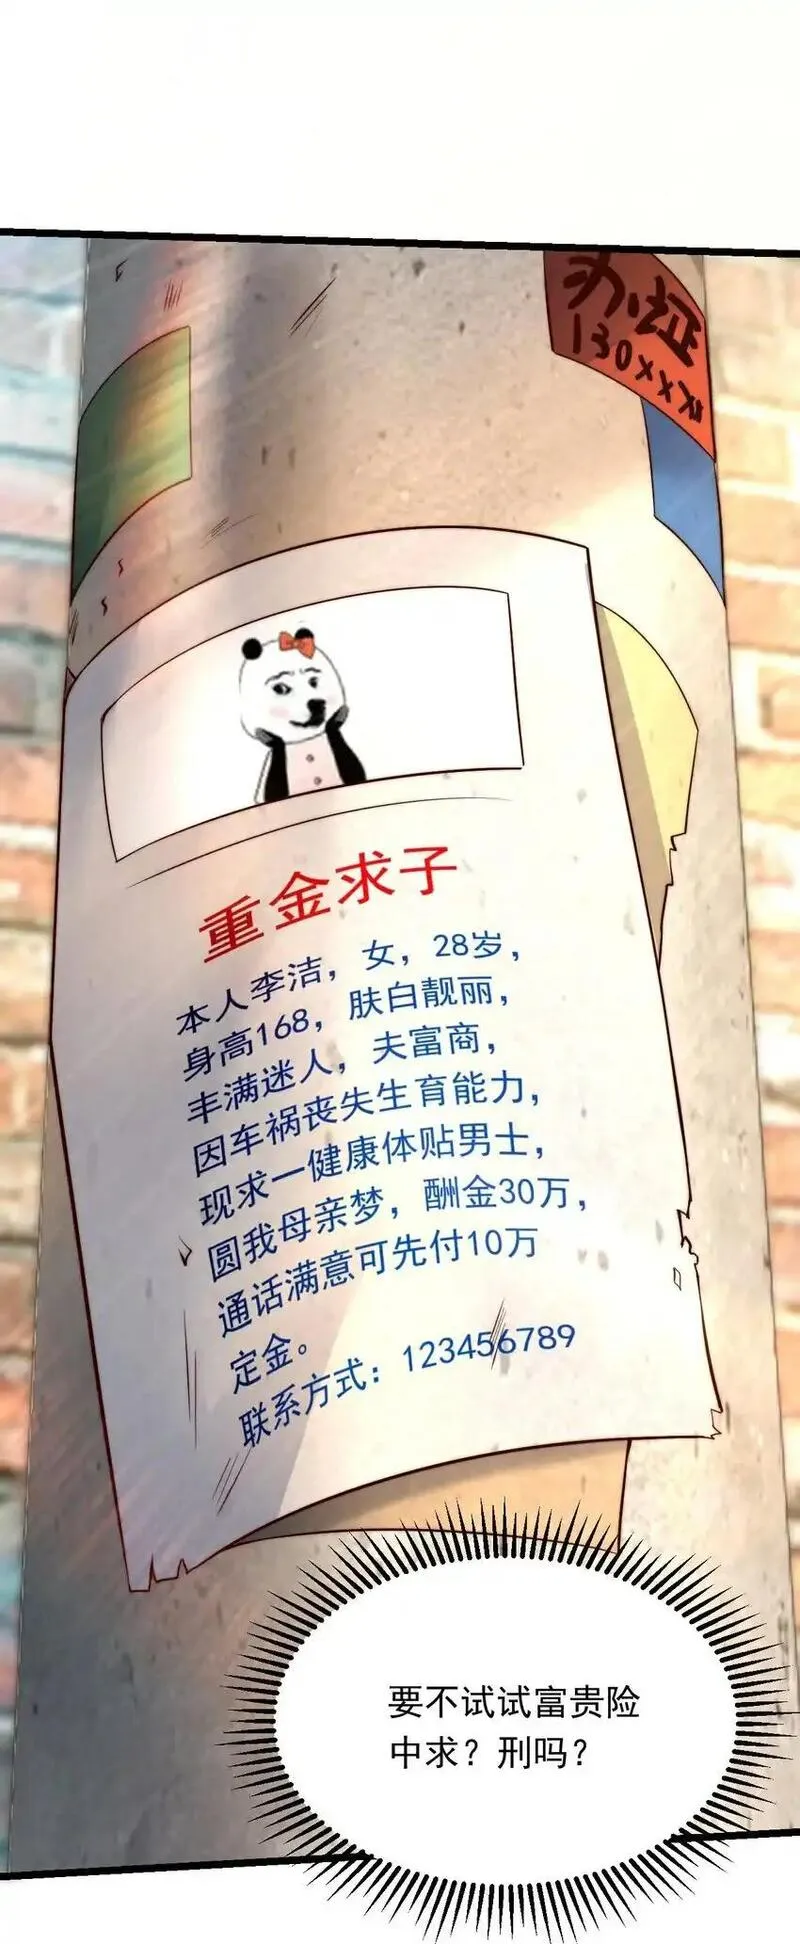 办证
130xxx
重金求子
本人李洁，女，28岁，
身高168，肤白靓丽，
丰满迷人，夫富商，
因车祸丧失生育能力，
现求一健康体贴男士，
圆我母亲梦，酬金30万，
通话满意可先付10万
定金。
联系方式：123456789
要不试试富贵险
中求？刑吗？